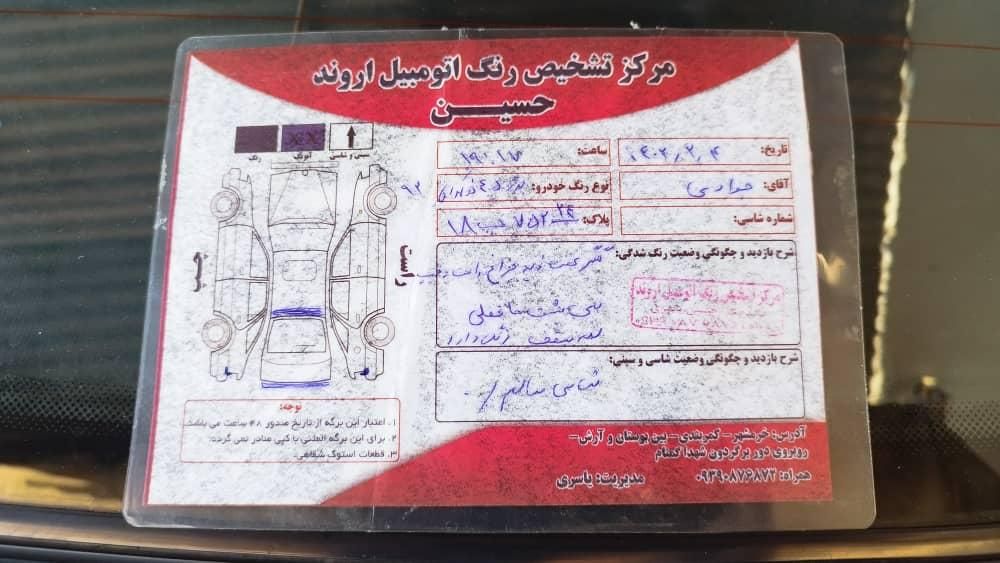 مرکز تشخیص رنگ اتومبیل اروند
حسین
تاریخ: ۱۴۰۲٫۲٫۴
ساعت: ۱۹:۱۷
آقای: جوادی
نوع رنگ خودرو: ۴۰۵ ۹۲
شماره شاسی:
پلاک: ۱۸ ب ۷۵۲
رنگ
آبرنگ
سینی و شاسی
راست
چپ
شرح بازدید و چگونگی وضعیت رنگ شدگی:
گلگیر عقب دور چراغ راست و چپ
لبه سقف رنگ دارد
مرکز تشخیص رنگ اتومبیل اروند
شرح بازدید و چگونگی وضعیت شاسی و سینی:
شاسی سالم
توجه:
۱. اعتبار این برگه از تاریخ صدور ۴۸ ساعت می باشد.
۲. برای این برگه المثنی یا کپی صادر نمی گردد.
۳. قطعات استوک شفاهی.
آدرس: خرمشهر - کمربندی - بین بوستان و آرش -
روبروی دور برگردون شهدا گمنام
همراه: ۰۹۳۹۰۸۷۶۸۷۳ مدیریت: یاسری